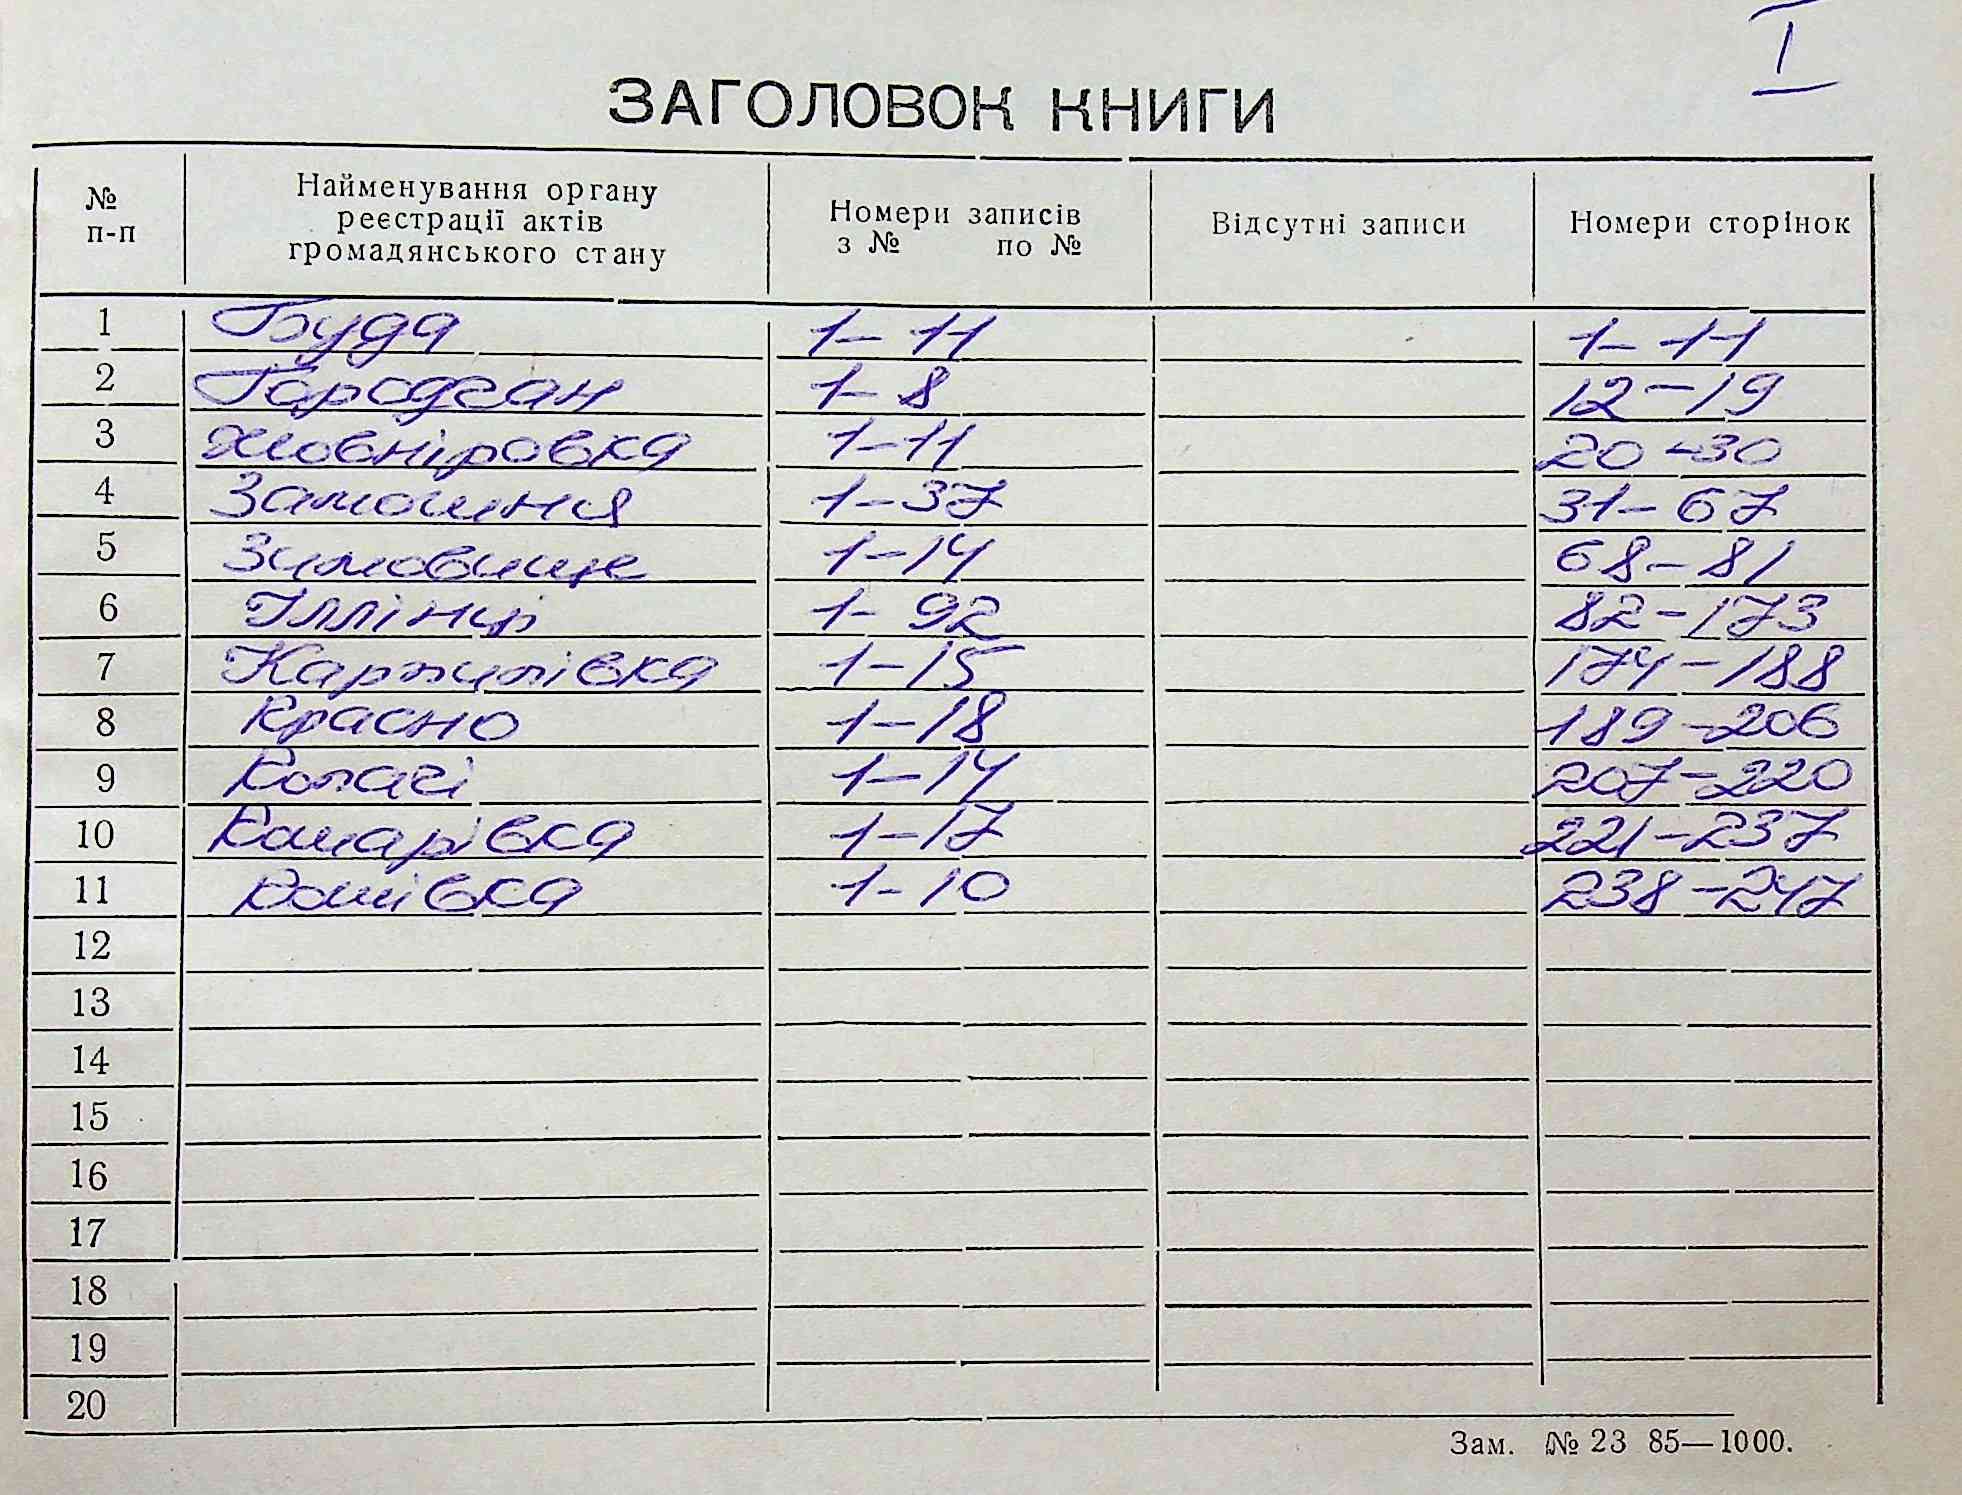 I
ЗАГОЛОВОК КНИГИ
№ п-п Найменування органу реєстрації актів громадянського стану Номери записів з № по № Відсутні записи Номери сторінок
1 Буда 1-11 1-11
2 Городган 1-8 12-19
3 Жовніровка 1-11 20-30
4 Замошня 1-37 31-67
5 Зимовище 1-14 68-81
6 Іллінці 1-92 82-173
7 Карпилівка 1-15 174-188
8 Красно 1-18 189-206
9 Копачі 1-14 207-220
10 Комарівка 1-17 221-237
11 Кошівка 1-10 238-247
12
13
14
15
16
17
18
19
20
Зам. № 23 85—1000.